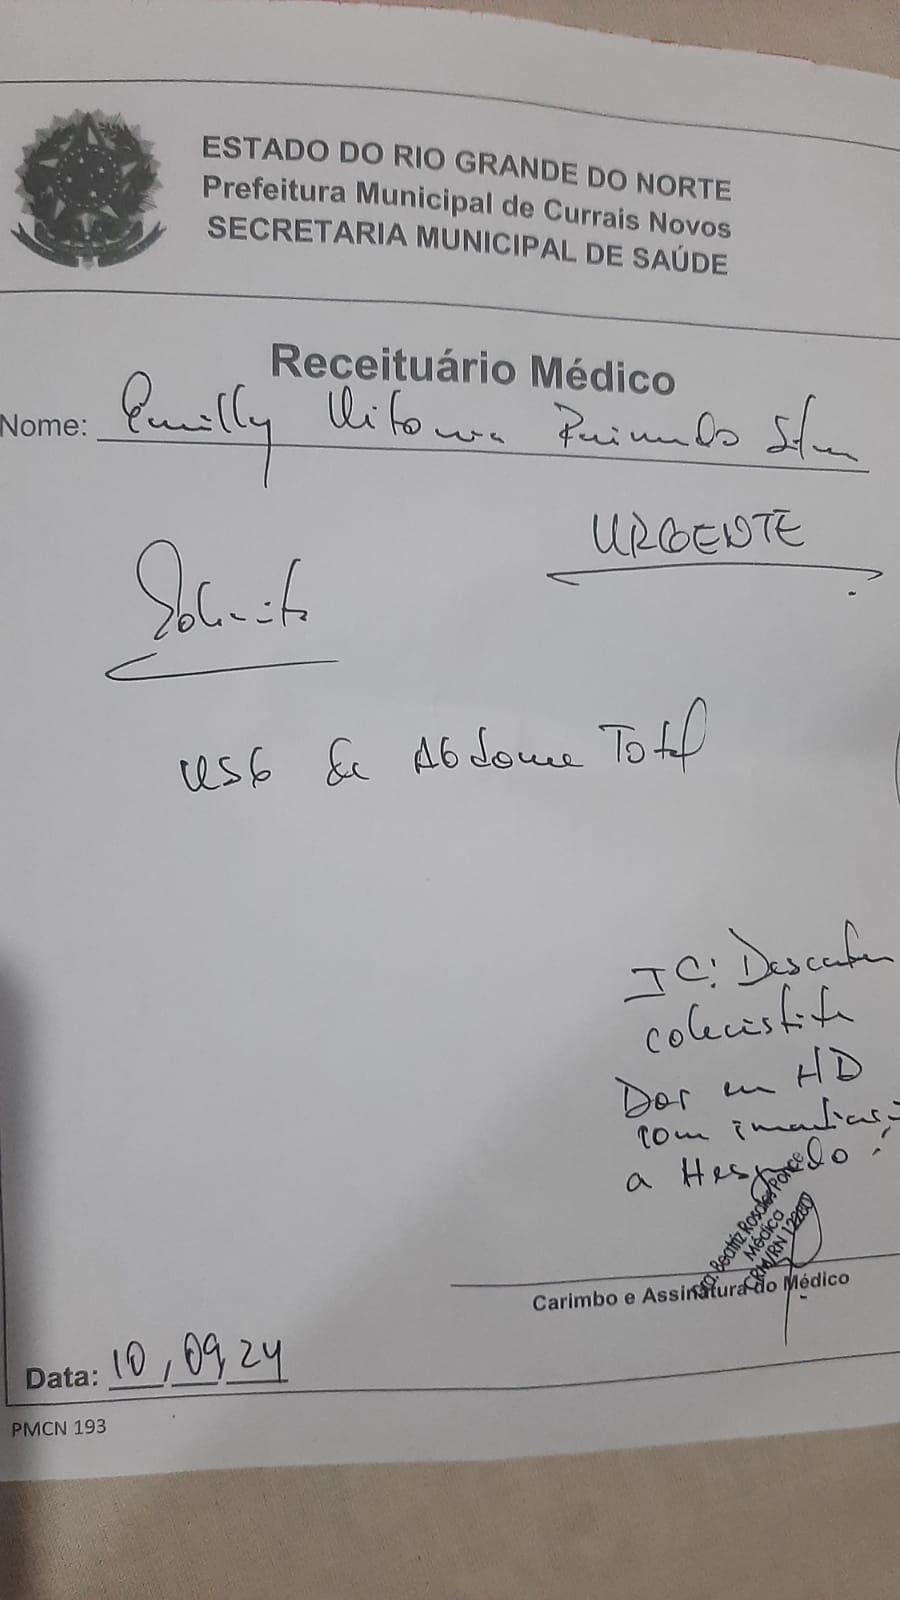 ESTADO DO RIO GRANDE DO NORTE
Prefeitura Municipal de Currais Novos
SECRETARIA MUNICIPAL DE SAÚDE
Receituário Médico
Nome: Emilly Vitoria Raimundo Silva
URGENTE
Solicito
USG de Abdome Total
IC: Descartar
colecistite
Dor em HD
com irradiação
a Hespaldo!
Dra. Beatriz Rosales Ponce
Médica
CRM/RN 12280
Carimbo e Assinatura do Médico
Data: 10, 09, 24
PMCN 193